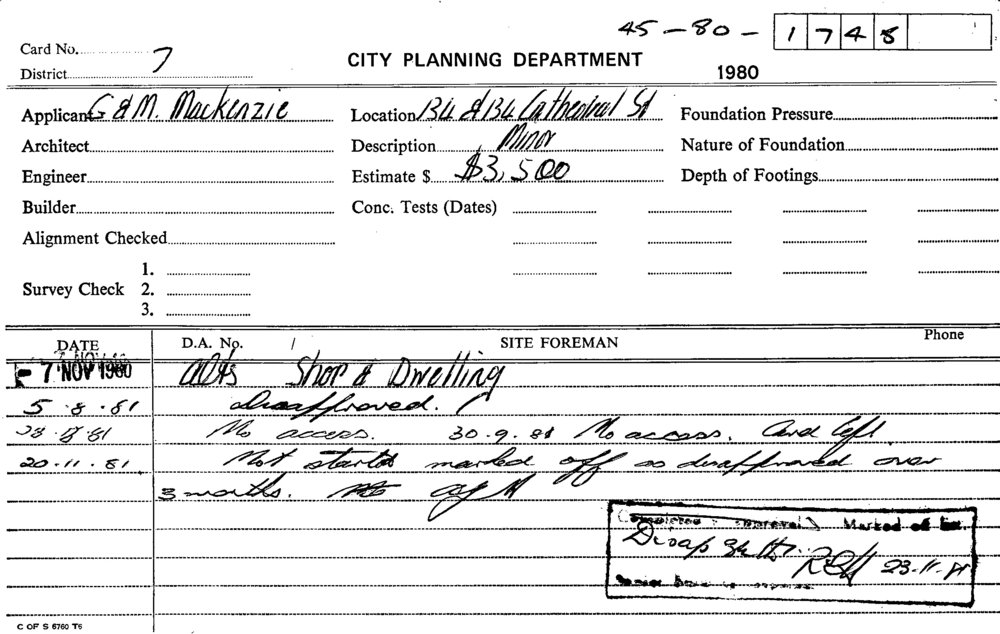 45-80- 1748
Card No.
7
CITY PLANNING DEPARTMENT
District
1980
Applicant G & M. Mackenzie Location 134 & 134 Cathedral St Foundation Pressure
Architect Description Minor Nature of Foundation
Engineer Estimate $ $3,500 Depth of Footings
Builder Conc. Tests (Dates)
Alignment Checked
1.
Survey Check 2.
3.
DATE D.A. No. SITE FOREMAN Phone
7 NOV 1980 Alts Shop & Dwelling
5.8.81 disapproved.
81 No access. 30.9.81 No access. Card left
20.11.81 Not started marked off as disapproved over
3 months.
Completed approval Marked off
Disap 23.11.81
C OF S 6760 T6